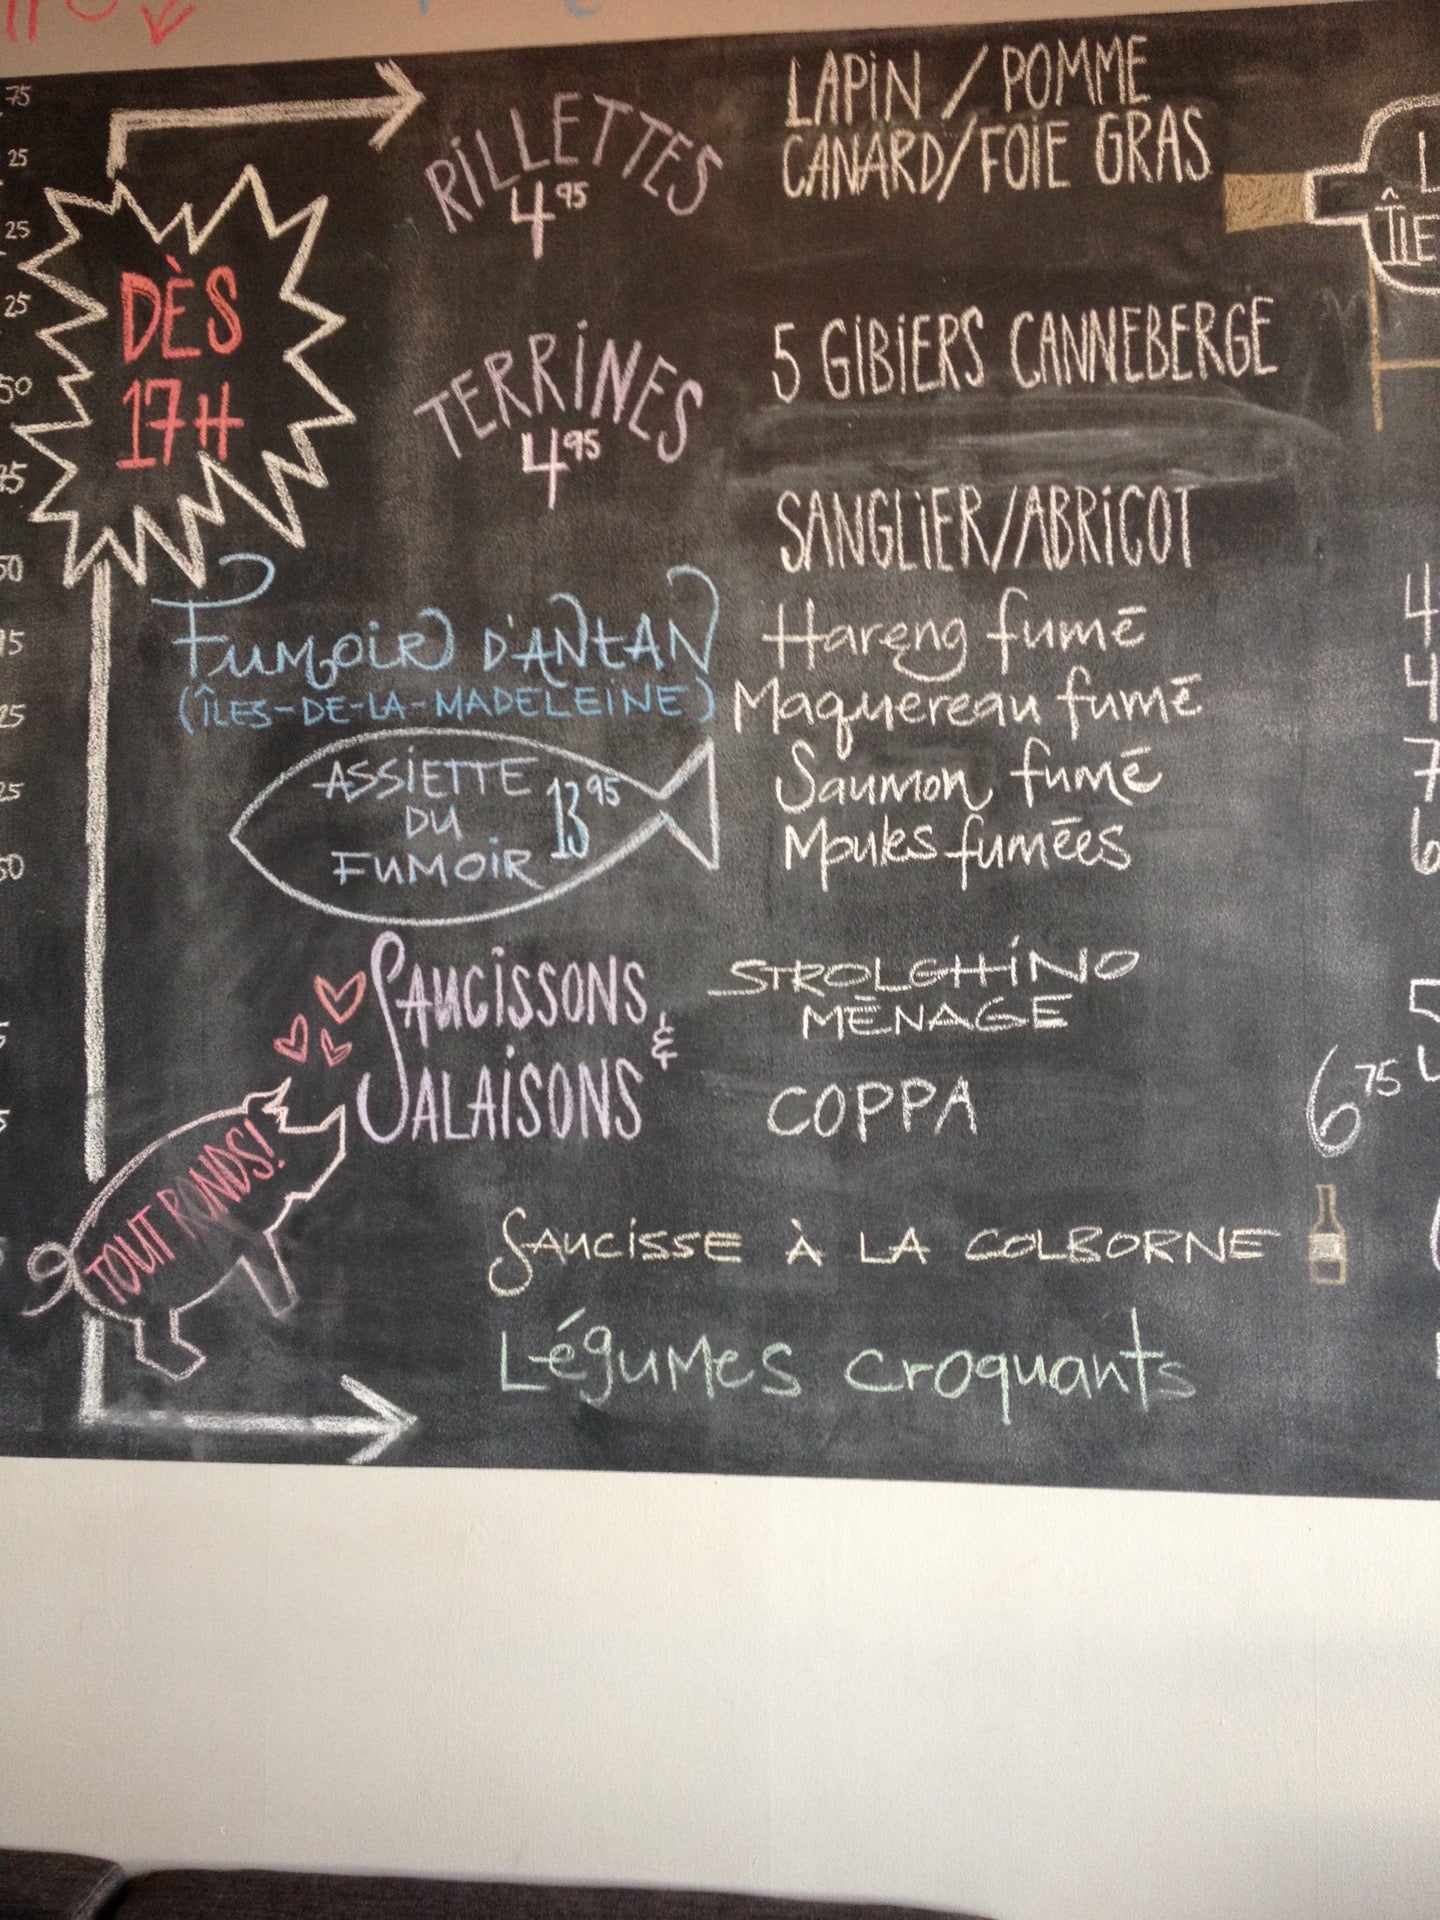 75
25
25
25
50
DÈS
17H
RILLETTES
4.95
LAPIN / POMME
CANARD/FOIE GRAS
TERRINES
4.95
5 GIBIERS CANNEBERGE
SANGLIER/ABRICOT
FUMOIR D'ANTAN
(ÎLES-DE-LA-MADELEINE)
ASSIETTE
DU
FUMOIR
13.95
Hareng fumé
Maquereau fumé
Saumon fumé
Moules fumées
SAUCISSONS
&
SALAISONS
STROLGHINO
MÉNAGE
COPPA
6.75
TOUT RONDS!
SAUCISSE À LA COLBORNE
Légumes croquants
ÎLE